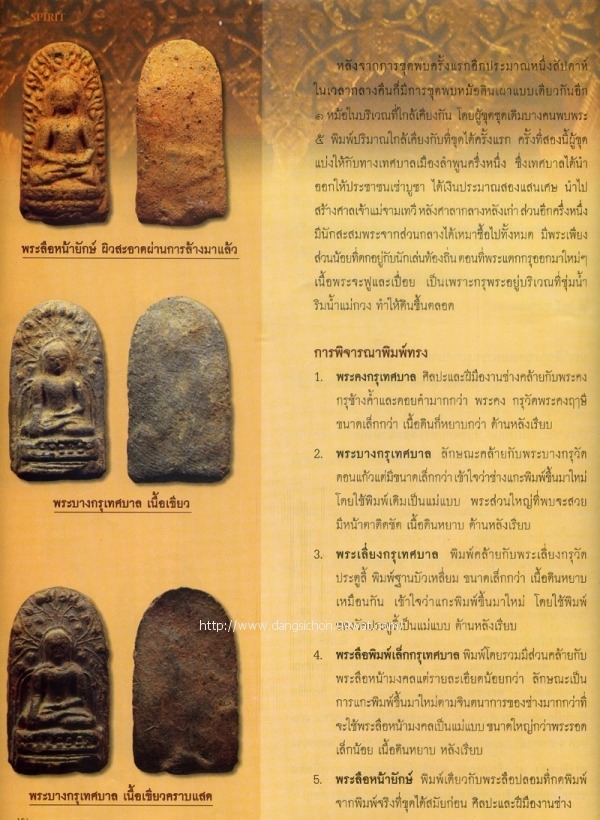 SPIRIT
พระลือหน้ายักษ์ ผิวสะอาดผ่านการล้างมาแล้ว
พระบางกรุเทศบาล เนื้อเขียว
พระบางกรุเทศบาล เนื้อเขียวคราบแสด
หลังจากการขุดพบครั้งแรกอีกประมาณหนึ่งสัปดาห์
ในเวลากลางคืนที่มีการขุดพบหม้อดินเผาแบบเดียวกันอีก
๑ หม้อในบริเวณที่ใกล้เคียงกัน โดยผู้ขุดชุดเดิมบางคนพบพระ
๕ พิมพ์ปริมาณใกล้เคียงกับที่ขุดได้ครั้งแรก ครั้งที่สองนี้ผู้ขุด
แบ่งให้กับทางเทศบาลเมืองลำพูนครึ่งหนึ่ง ซึ่งเทศบาลได้นำ
ออกให้ประชาชนเช่าบูชา ได้เงินประมาณสองแสนเศษ นำไป
สร้างศาลเจ้าแม่จามเทวี หลังศาลากลางหลังเก่า ส่วนอีกครึ่งหนึ่ง
มีนักสะสมพระจากส่วนกลางได้เหมาซื้อไปทั้งหมด มีพระเพียง
ส่วนน้อยที่ตกอยู่กับนักเล่นท้องถิ่น ตอนที่พระแตกกรุออกมาใหม่ๆ
เนื้อพระจะฟูและเปื่อย เป็นเพราะกรุพระอยู่บริเวณที่ชุ่มน้ำ
ริมน้ำแม่กวง ทำให้ดินชื้นตลอด
การพิจารณาพิมพ์ทรง
1. พระคงกรุเทศบาล ศิลปะและฝีมืองานช่างคล้ายกับพระคง
กรุช้างค้ำและดอยคำมากกว่า พระคง กรุวัดพระคงฤๅษี
ขนาดเล็กกว่า เนื้อดินก็หยาบกว่า ด้านหลังเรียบ
2. พระบางกรุเทศบาล ลักษณะคล้ายกับพระบางกรุวัด
ดอนแก้วแต่มีขนาดเล็กกว่า เข้าใจว่าช่างแกะพิมพ์ขึ้นมาใหม่
โดยใช้พิมพ์เดิมเป็นแม่แบบ พระส่วนใหญ่ที่พบจะสวย
มีหน้าตาติดชัด เนื้อดินหยาบ ด้านหลังเรียบ
3. พระเลี่ยงกรุเทศบาล พิมพ์คล้ายกับพระเลี่ยงกรุวัด
ประตูลี้ พิมพ์ฐานบัวเหลี่ยม ขนาดเล็กกว่า เนื้อดินหยาบ
เหมือนกัน เข้าใจว่าแกะพิมพ์ขึ้นมาใหม่ โดยใช้พิมพ์
กรุวัดประตูลี้เป็นแม่แบบ ด้านหลังเรียบ
4. พระลือพิมพ์เล็กกรุเทศบาล พิมพ์โดยรวมมีส่วนคล้ายกับ
พระลือหน้ามงคลแต่รายละเอียดน้อยกว่า ลักษณะเป็น
การแกะพิมพ์ขึ้นมาใหม่ตามจินตนาการของช่างมากกว่าที่
จะใช้พระลือหน้ามงคลเป็นแม่แบบ ขนาดใหญ่กว่าพระรอด
เล็กน้อย เนื้อดินหยาบ หลังเรียบ
5. พระลือหน้ายักษ์ พิมพ์เดียวกับพระลือปลอมที่กดพิมพ์
จากพิมพ์จริงที่ขุดได้สมัยก่อน ศิลปะและฝีมืองานช่าง